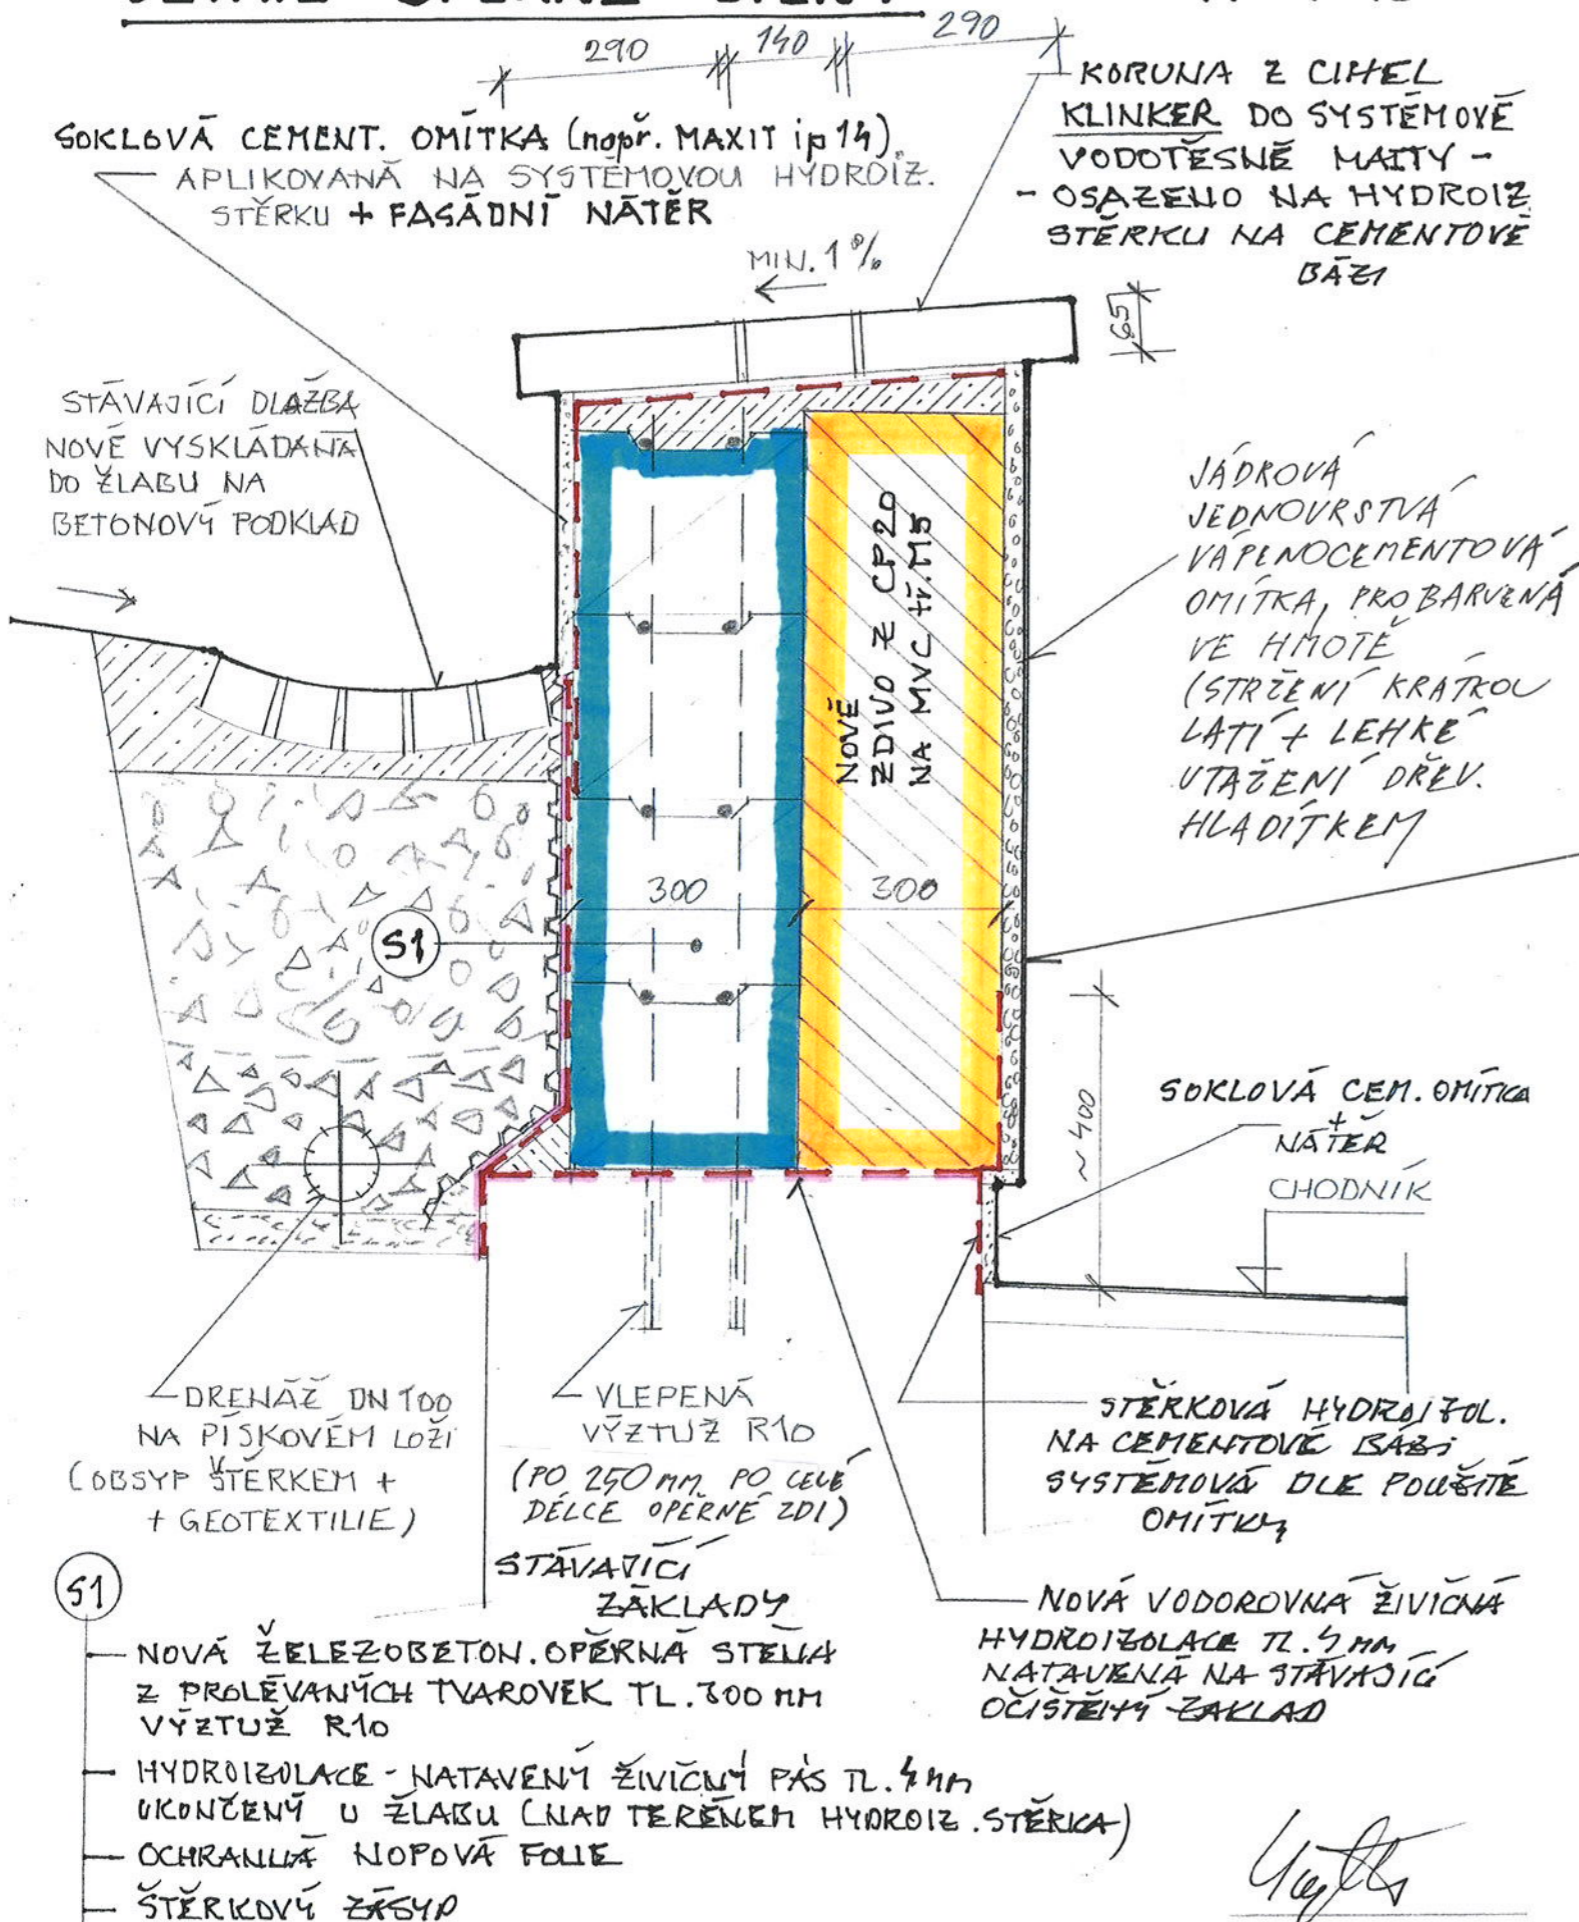 290 140 290
SOKLOVÁ CEMENT. OMÍTKA (např. MAXIT ip 14)
APLIKOVANÁ NA SYSTÉMOVOU HYDROIZ.
STĚRKU + FASÁDNÍ NÁTĚR
KORUNA Z CIHEL
KLINKER DO SYSTÉMOVÉ
VODOTĚSNÉ MALTY -
- OSAZENO NA HYDROIZ
STĚRKU NA CEMENTOVÉ
BÁZI
MIN. 1%
65
STÁVAJÍCÍ DLAŽBA
NOVĚ VYSKLÁDANÁ
DO ŽLABU NA
BETONOVÝ PODKLAD
NOVÉ
ZDIVO Z CP20
NA MVC tř. M5
JÁDROVÁ
JEDNOVRSTVÁ
VÁPENOCEMENTOVÁ
OMÍTKA, PROBARVENÁ
VE HMOTĚ
(STRŽENÍ KRÁTKOU
LATÍ + LEHKÉ
UTAŽENÍ DŘEV.
HLADÍTKEM
300 300
S1
~ 400
SOKLOVÁ CEM. OMÍTKA
+
NÁTĚR
CHODNÍK
DRENÁŽ DN 100
NA PÍSKOVÉM LOŽI
(OBSYP ŠTĚRKEM +
+ GEOTEXTILIE)
VLEPENÁ
VÝZTUŽ R10
(PO 250 mm PO CELÉ
DÉLCE OPĚRNÉ ZDI)
STÁVAJÍCÍ
ZÁKLADY
STĚRKOVÁ HYDROIZOL.
NA CEMENTOVÉ BÁZI
SYSTÉMOVÁ DLE POUŽITÉ
OMÍTKY
NOVÁ VODOROVNÁ ŽIVIČNÁ
HYDROIZOLACE TL. 4 MM
NATAVENÁ NA STÁVAJÍCÍ
OČIŠTĚNÝ ZÁKLAD
S1
NOVÁ ŽELEZOBETON. OPĚRNÁ STĚNA
Z PROLÉVANÝCH TVAROVEK TL. 300 MM
VÝZTUŽ R10
HYDROIZOLACE - NATAVENÝ ŽIVIČNÝ PÁS TL. 4 mm
UKONČENÝ U ŽLABU (NAD TERÉNEM HYDROIZ. STĚRKA)
OCHRANNÁ NOPOVÁ FOLIE
ŠTĚRKOVÝ ZÁSYP